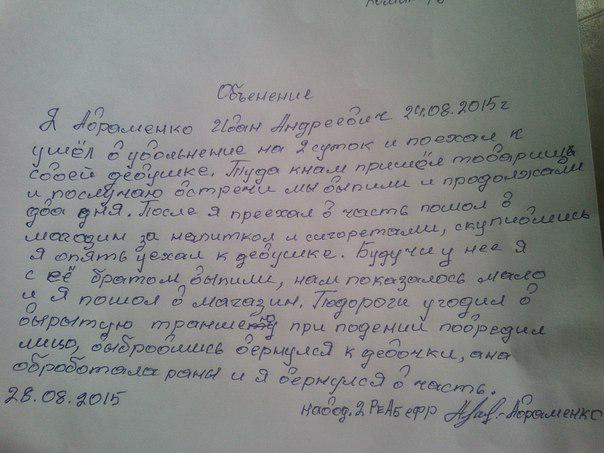 Объенение
Я Абраменко Иван Андреевич 24.08.2015г
ушёл в увольнение на 2 суток и поехал к
своей девушке. Туда кнам пришёл товарищь
и послучаю встречи мы выпили и продолжали
два дня. После я преехал в часть пошол в
магозин за напитком и сигоретами, скупившись
Я опять уехал к девушке. Будучи у нее я
с её братом выпили, нам показалось мало
и я пошол в магазин. Подороги угодил в
вырытую траншею при подении повредил
лицо, выбровшись вернулся к девочки, ана
оброботала раны и я вернулся в часть.
28.08.2015
Абраменко